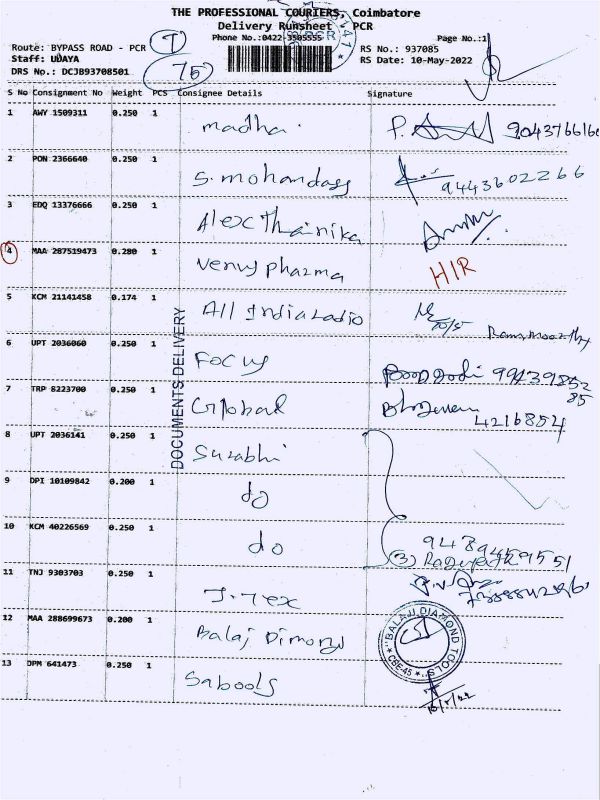 THE PROFESSIONAL COURIERS, Coimbatore
Delivery Runsheet PCR
Phone No.:0422-3505555 Page No.:1
Route: BYPASS ROAD - PCR RS No.: 937085
Staff: UDAYA RS Date: 10-May-2022
DRS No.: DCJB93708501
T
75
S No Consignment No Weight PCS Consignee Details Signature
1 AWY 1509311 0.250 1 madha
2 PON 2366640 0.250 1 S. mohandass 9443602266
3 EDQ 13376666 0.250 1 Alex Thainika
4 MAA 287519473 0.280 1 Venus pharma HIR
5 KCM 21141458 0.174 1 All India radio 10/5
6 UPT 2036060 0.250 1 Focus
7 TRP 8223700 0.250 1 Global 4216854
8 UPT 2036141 0.250 1 Surabhi
9 DPI 10109842 0.200 1 do
10 KCM 40226569 0.250 1 do
(3)
11 TNJ 9303703 0.250 1 J. Tex
12 MAA 288699673 0.200 1 Balaj Dimond
BALAJI DIAMOND TOOLS
CBE-45
13 DPM 641473 0.250 1 Sabools
DOCUMENTS DELIVERY